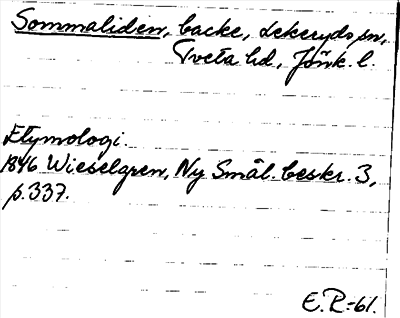 Sommaliden, backe, Lekeryds sn,
Tveta hd, Jönk. l.
Etymologi.
1846 Wieselgren, Ny Smål. beskr. 3,
p. 337.
E.R-61.